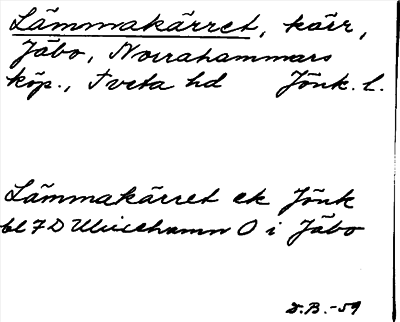 Lämmakärret, kärr,
Jäbo, Norrahammars
köp., Tveta hd Jönk. l.
Lämmakärret ek Jönk
bl 7D Ulricehamn O i Jäbo
D.B.-59